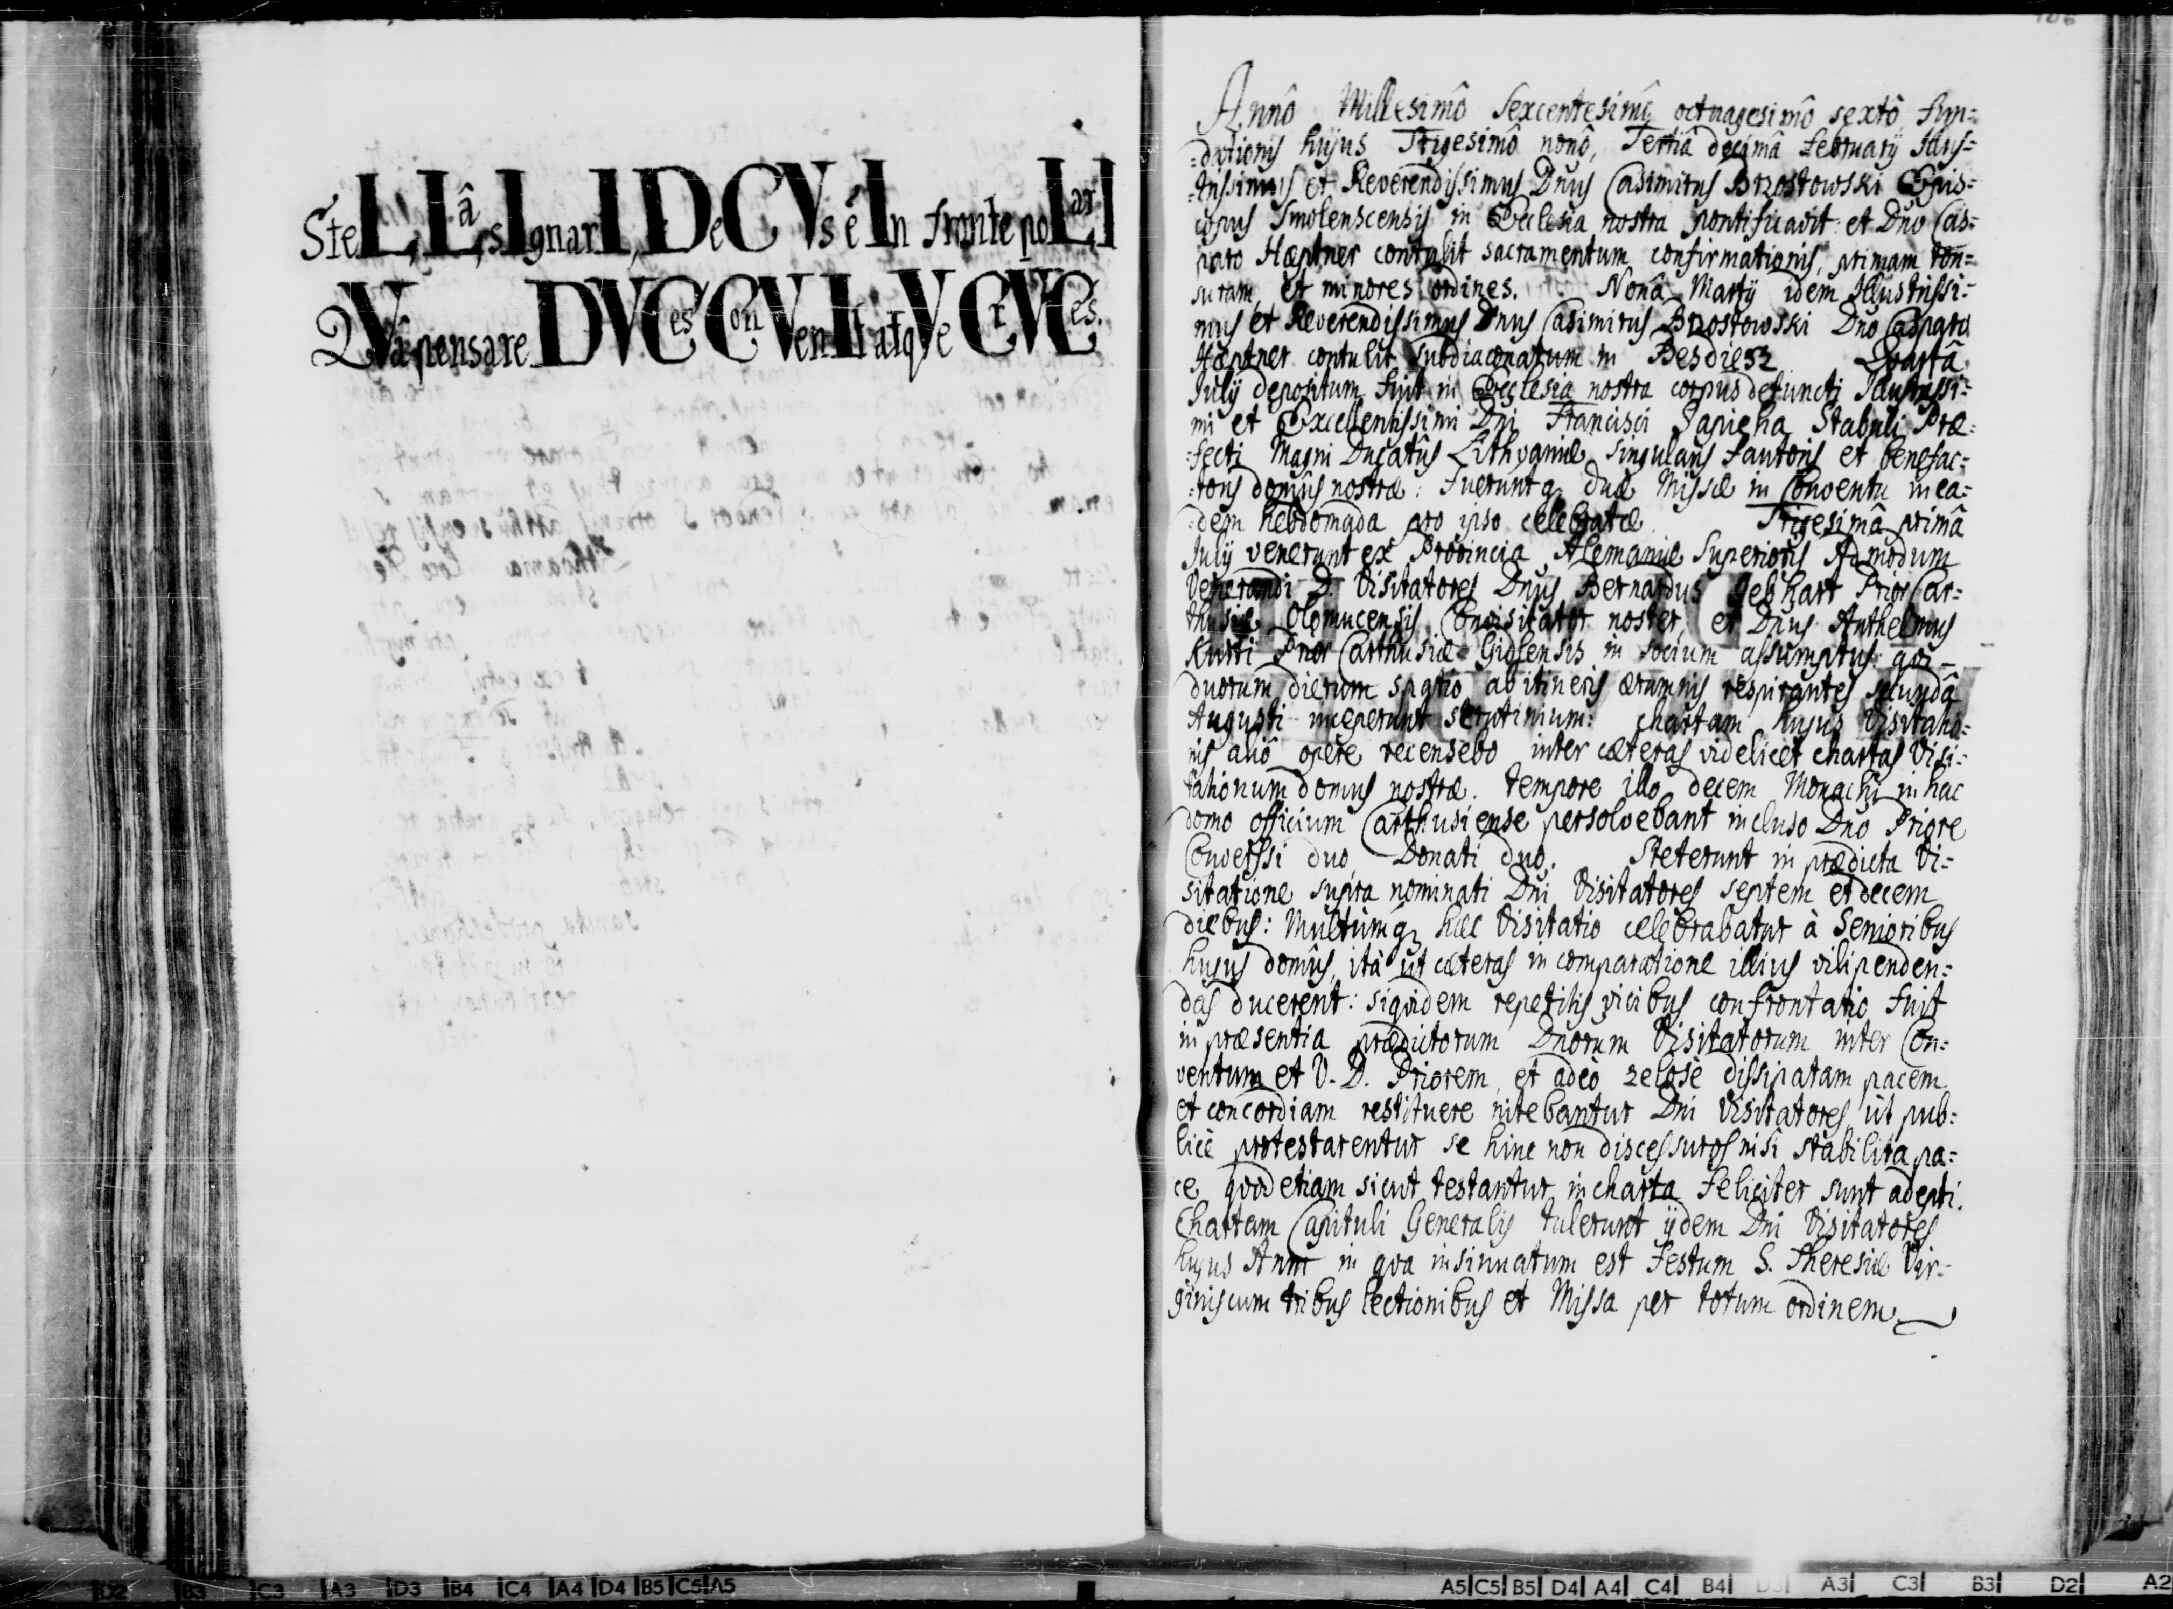 SteLLâ, sIgnarI, DeCVs é In fronte poLarI
QVâ pensare DVCes ConVenIt atqVe CrVCes.
106
Annô Millesimô Sexcentesimô octuagesimô sextô fun=
=dationis huius Trigesimô nonô, Tertiâ decimâ February Illus=
=trissimus et Reverendissimus Dnus Casimirus Brzostowski Epis=
copus Smolenscensis in Ecclesia nostra pontificavit: et Dno Cas=
paro Hæptner contulit sacramentum confirmationis, primam ton=
suram, et minores ordines. Nonâ Martÿ idem Illustrissi=
mus et Reverendissimus Dnus Casimirus Brzostowski Dno Casparo
Hæptner contulit Subdiaconatum in Besdiesz Quartâ
Julÿ depositum fuit in Ecclesia nostra corpus defuncti Illustrissi=
mi et Excellentissimi Dni Francisci Sapieha Stabuli Præ=
=fecti Magni Ducatûs Lithvaniæ Singularis Fautoris et benefac=
=toris domûs nostræ: Fueruntq duæ Missæ in Conventu in ea=
=dem hebdomada pro ipso celebratæ. Trigesimâ primâ
Julÿ venerunt ex Provincia Alemaniæ Superioris Admodum
Venerandi D. Visitatores Dnus Bernardus Gebhart Prior Car=
thusiæ Olomucensis Convisitator noster, et Dnus Anthelmus
Kurti Prior Carthusiæ Gidlensis in socium assumptus: qvi
duorum dierum spatio ab itineris ærumnis respirantes secundâ
Augusti inceperunt scrutinium: chartam hujus Visitatio=
nis aliô opere recensebo inter cæteras videlicet chartas Visi=
tationum domus nostræ. tempore illo decem Monachi in hac
domo officium Carthusiense persolvebant incluso Dno Priore
Converssi duo, Donati duo. Steterunt in prædicta Vi=
sitatione supra nominati Dni Visitatores septem et decem
diebus: Multumq hæc Visitatio celebrabatur à Senioribus
hujus domûs, ità ut cæteras in comparatione illius vilipenden=
das ducerent: siqvidem repetitis vicibus confrontatio fuit
in præsentia prædictorum Dnorum Visitatorum inter Con=
ventum et V. D. Priorem, et adeò zelosè dissipatam pacem
et concordiam restituere nitebantur Dni Visitatores ut pub=
licè protestarentur se hinc non discessuros nisi stabilita pa=
ce qvod etiam sicut testantur in charta feliciter sunt adepti.
Chartam Capituli Generalis tulerunt ÿdem Dni Visitatores
hujus Anni in qva insinuatum est Festum S. Theresiæ Vir=
ginis cum tribus lectionibus et Missa per totum ordinem.